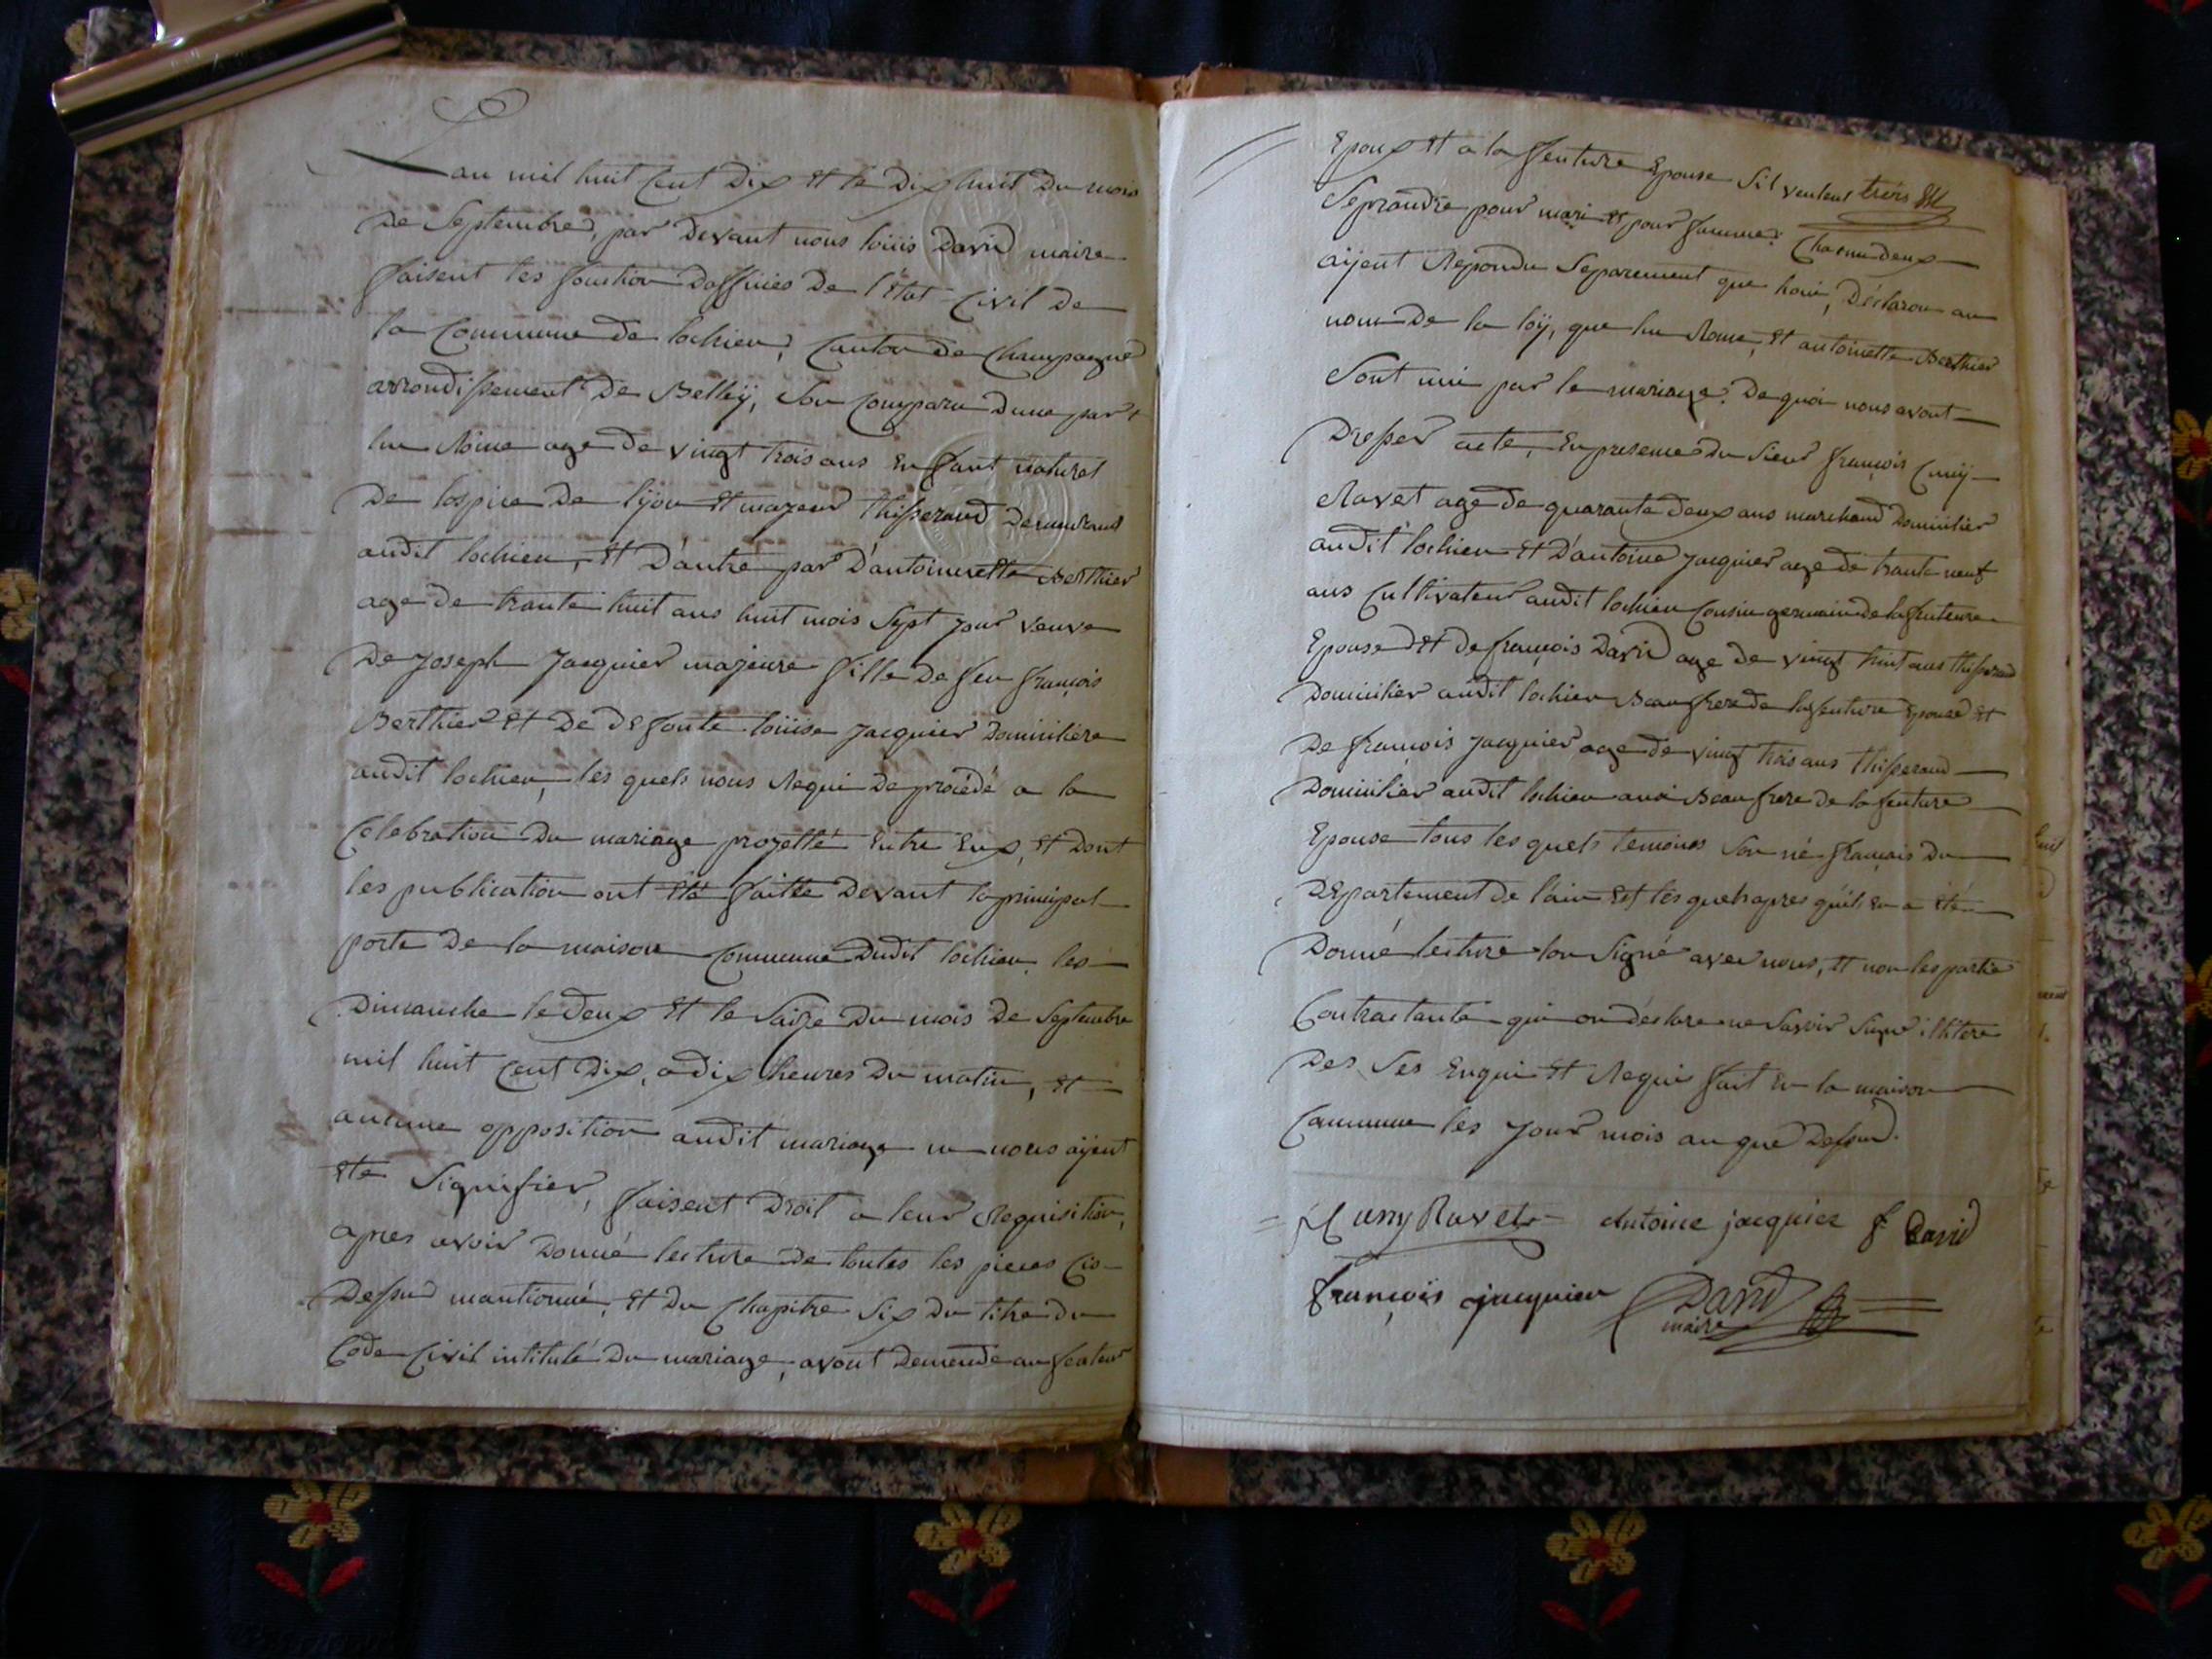 Lan mil huit Cent Dix et le Dix huit Du mois
De Septembre, par Devant nous loüis David maire
faisent les fonction Dofficies De l'Etat Civil De
la Commune de lochieu, Canton De Champagne
arrondissement De Belleÿ, Son Comparu Dune part
luc Rome age De vingt trois ans Enfant naturel
De lospice De lÿon et majeur thisserand Demeurant
audit lochieu, et D'autre par D'antoinette Berthier
age De trante huit ans huit mois Sept jour veuve
De joseph jacquier majeure fille De feu françois
Berthier et De Defonte loüise jacquier Domiciliere
audit lochieu, les quels nous Requi De procédé a la
Celebration Du mariage projetté Entre Eux, et Dont
les publication ont été faitte Devant la principal
porte De la maison Commune Dudit lochieu les
Dimanche le Deux et le Saize Du mois De Septembre
mil huit Cent Dix, a Dix heures Du matin, et
aucune opposition audit mariage ne nous aÿent
ete Signifier, faisent Droit a leur Requisition,
apres avoir Donné lecture De toutes les pieces Cis
Dessud mantionné, et Du Chapitre Six Du titre Du
Code Civil intitulé Du mariage, avont Demende au feuteur
Epoux et a la feuture Epouse Sil veulent trois
Seprandre pour mari et pour famme. Chacun deux
aÿent Repondu Separement que houi, Déclaron au
nom De la loÿ, que luc Rome, et antoinette Berthier
Sont uni par le mariage. De quoi nous avont
Dresser acte, En presence Du Sieur françois Cunÿ
Ravet age de quarante Deux ans marchand Domicilier
audit lochieu et D'antoine jacquier age De trante neuf
ans Cultivateur audit lochieu Cousin germain de la feuteure
Epouse et De françois David age De vingt huit ans thisserand
Domicilier audit lochieu Beaufrere De la feuture Epouse et
De françois jacquier age De vingt trois ans thisserand
Domicilier audit lochieu ausi Beaufrere De la feuture
Epouse tous les quels temoins Son né français Du
Departement De l'ain et les quels apres qu'il En a été
Donné lecture lon Signé avec nous, et non les partie
Contractante qui on déclare ne Savoir Signé illitere
Des Ses Enqui et Requi fait En la maison
Commune les jour mois an que Dessud.
Cuny Ravet Antoine jacquier f David
françois jacquier David
maire